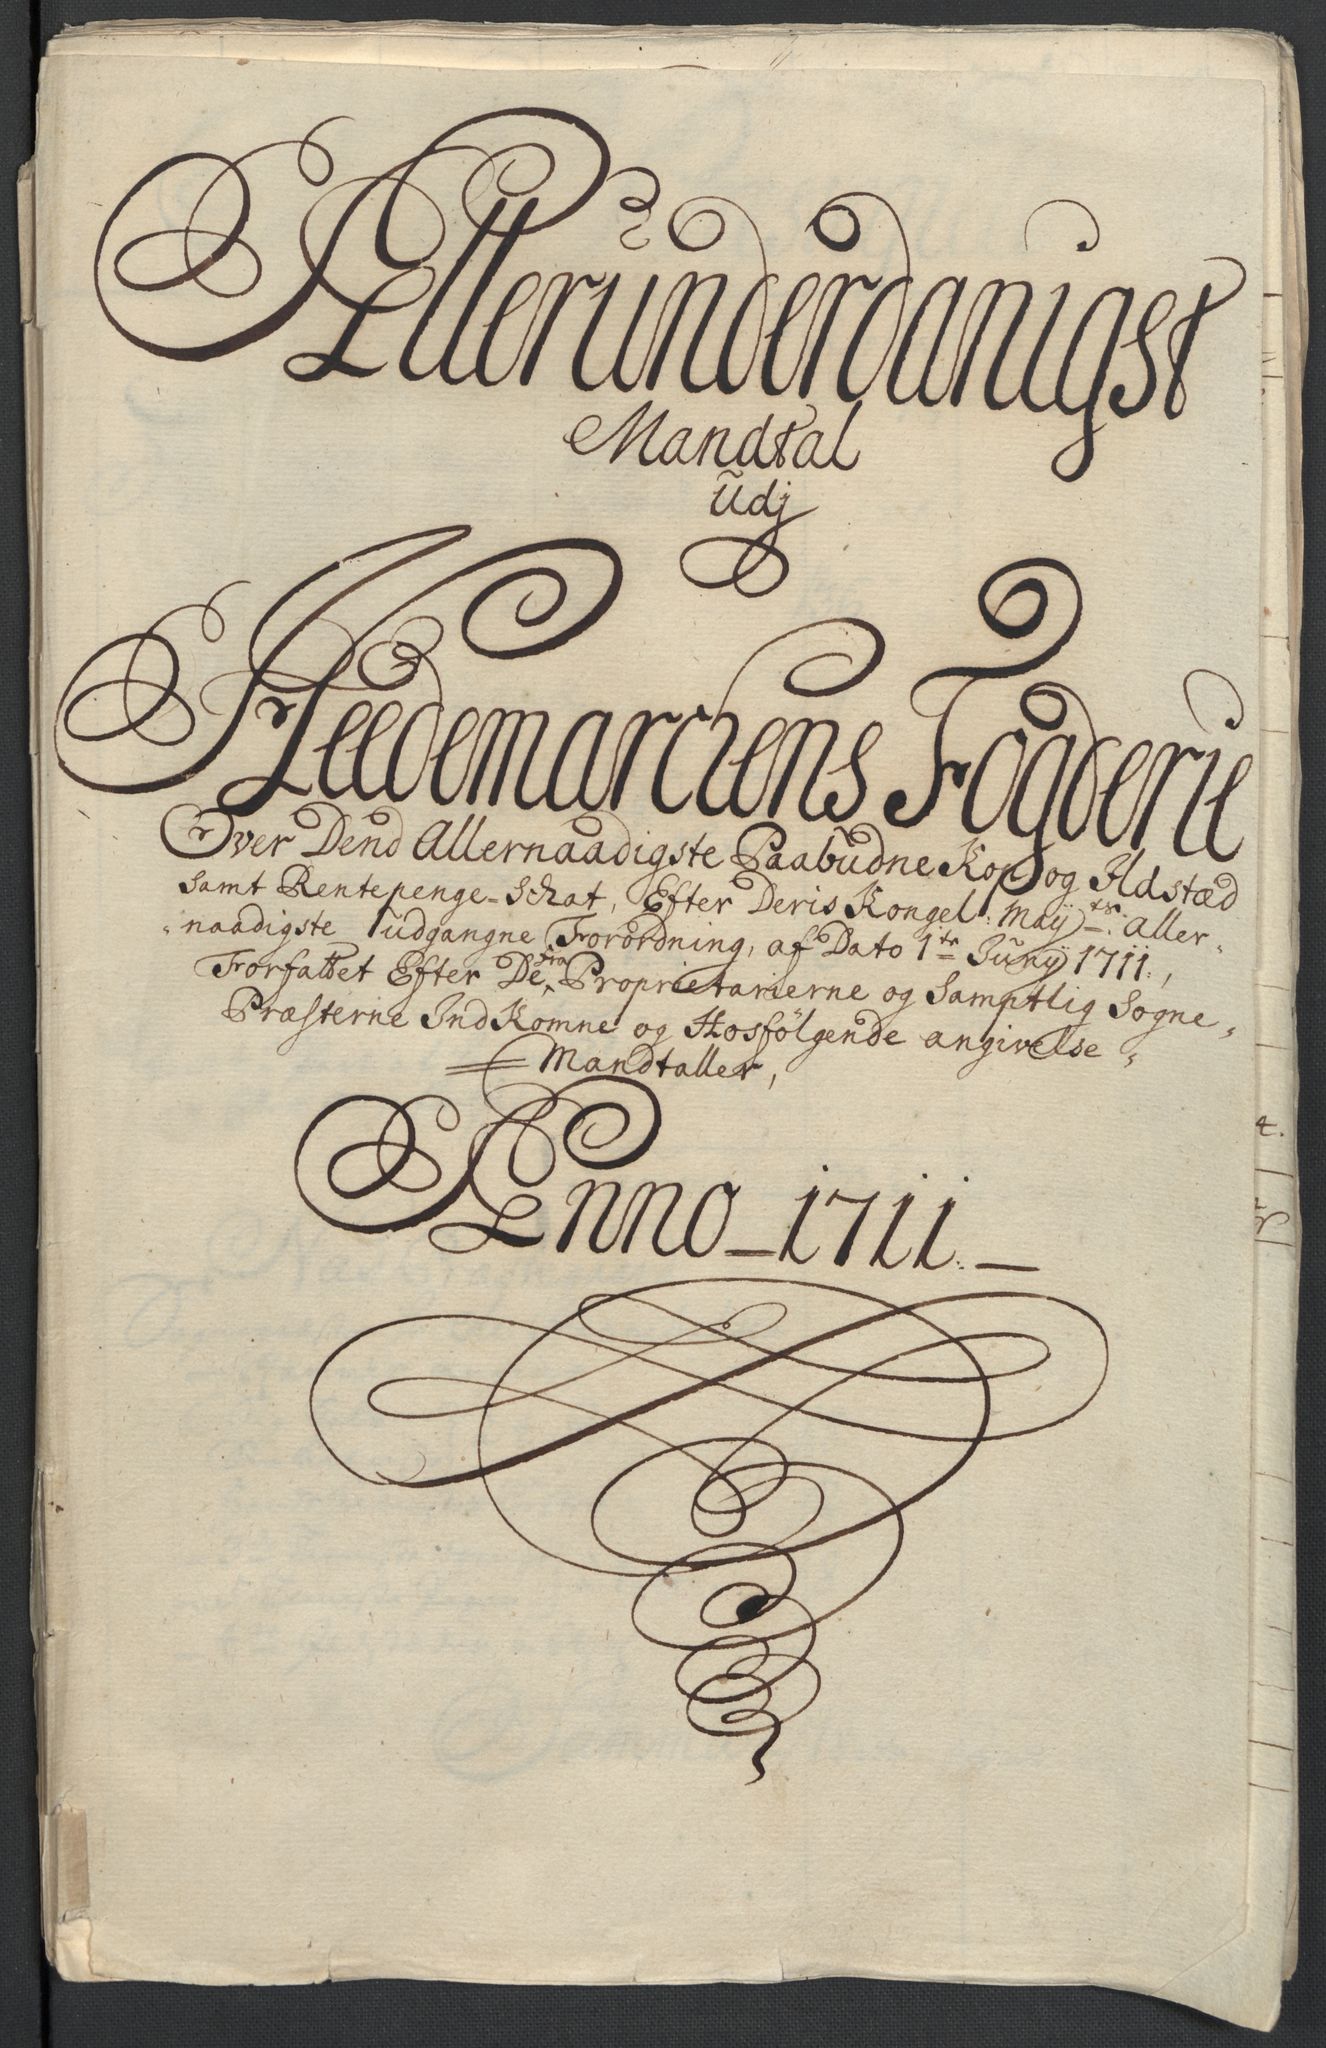 Allerunderdanigst
Mandtal
Udj
Heedemarchens Fogderie
Over Dend Allernaadigste Paabudne Kop og Ildstæd
Samt Rentepenge-Schat, Efter Deris Kongel: Maÿ:ts: Aller-
naadigste udgangne Forordning, af Dato 1te Junÿ 1711,
Forfattet Efter De fra Proprietarierne og Samptlig Sogne-
Præsterne IndKomne og Hosfölgende angivelse-
Mandtaller,
Anno - 1711. -
4.